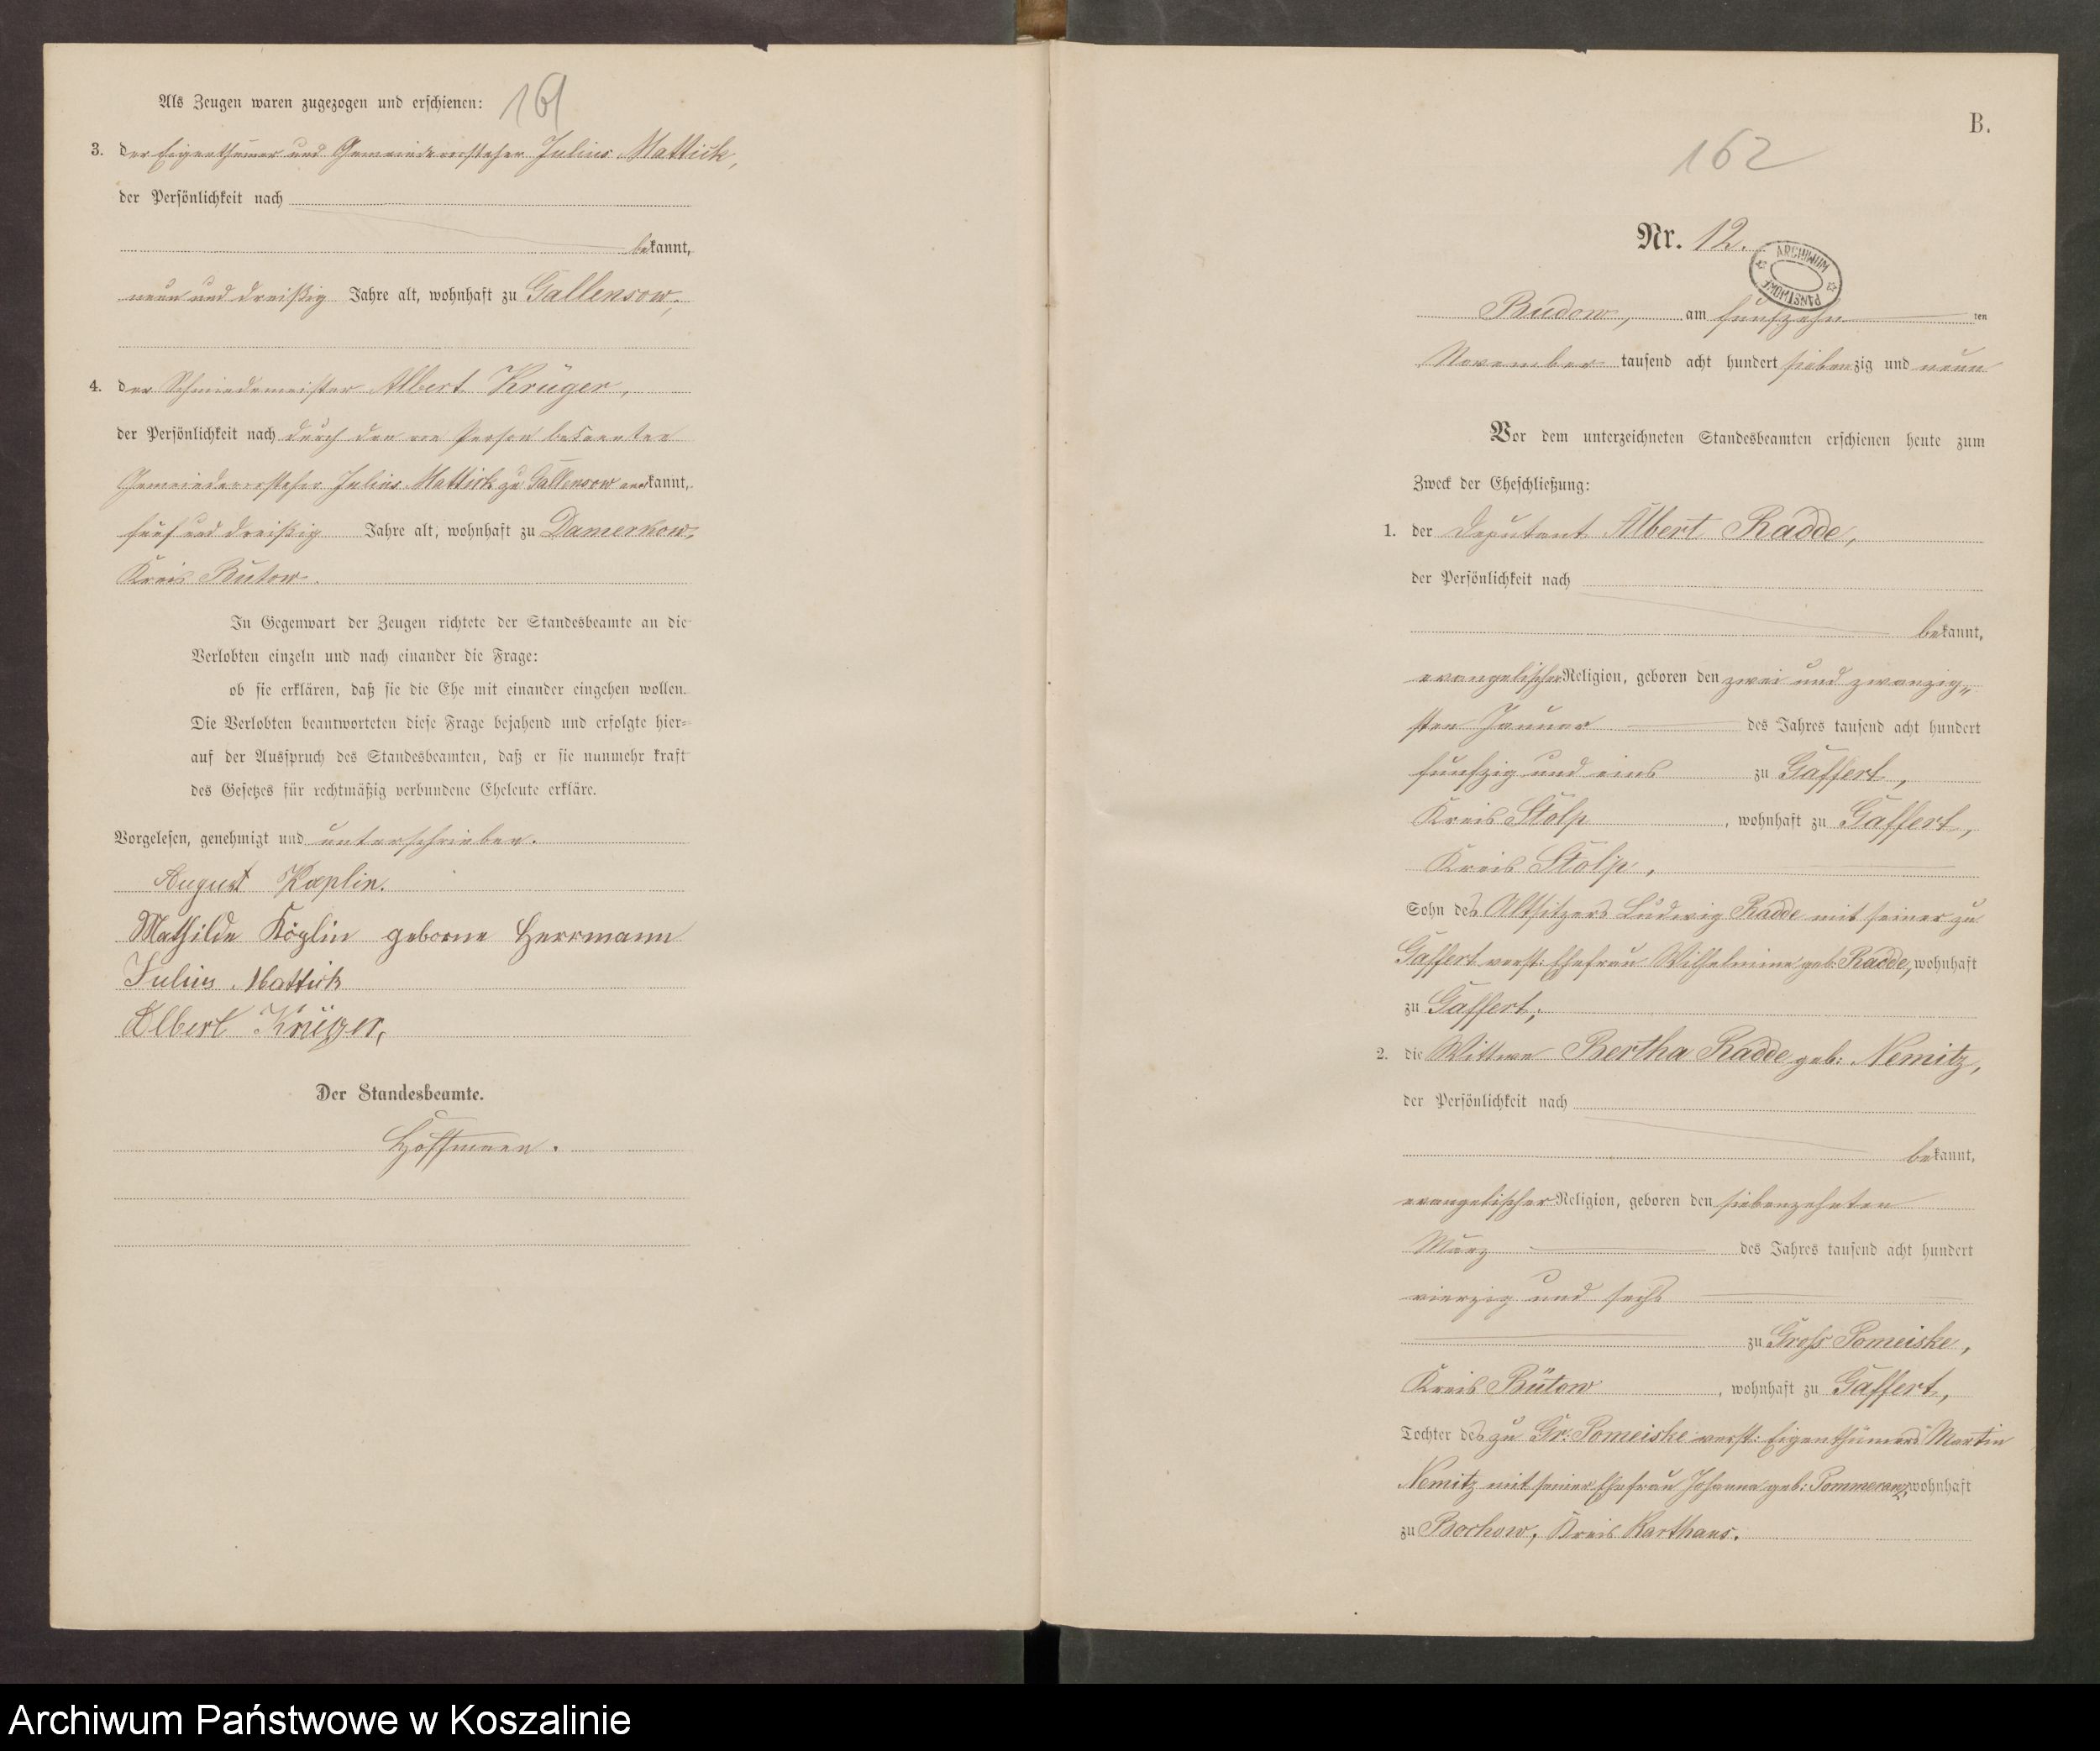 Als Zeugen waren zugezogen und erschienen:
161
3. der Eigenthümer und Gemeindevorsteher Julius Mattick,
der Persönlichkeit nach
bekannt,
neun und dreißig Jahre alt, wohnhaft zu Gallensow,
4. der Schmiedemeister Albert Krüger,
der Persönlichkeit nach durch den von Person bekannten
Gemeindevorsteher Julius Mattick zu Gallensow anerkannt,
fünf und dreißig Jahre alt, wohnhaft zu Damerkow,
Kreis Bütow.
In Gegenwart der Zeugen richtete der Standesbeamte an die
Verlobten einzeln und nach einander die Frage:
ob sie erklären, daß sie die Ehe mit einander eingehen wollen.
Die Verlobten beantworteten diese Frage bejahend und erfolgte hier-
auf der Ausspruch des Standesbeamten, daß er sie nunmehr kraft
des Gesetzes für rechtmäßig verbundene Eheleute erkläre.
Vorgelesen, genehmigt und unterschrieben.
August Kœplin.
Mathilde Köplin geborne Herrmann
Julius Mattick
Albert Krüger,
Der Standesbeamte.
Hoffmann.
B.
162
Nr. 12.
ARCHIWUM PAŃSTWOWE
Budow, am fünfzehn ten
November tausend acht hundert siebenzig und neun
Vor dem unterzeichneten Standesbeamten erschienen heute zum
Zweck der Eheschließung:
1. der Deputant Albert Radde,
der Persönlichkeit nach
bekannt,
evangelischer Religion, geboren den zwei und zwanzig-
sten Januar des Jahres tausend acht hundert
fünfzig und eins zu Gaffert,
Kreis Stolp, wohnhaft zu Gaffert,
Kreis Stolp,
Sohn des Altsitzers Ludwig Radde mit seiner zu
Gaffert verst: Ehefrau Wilhelmine geb: Radde, wohnhaft
zu Gaffert;
2. die Wittwe Bertha Radde geb: Nemitz,
der Persönlichkeit nach
bekannt,
evangelischer Religion, geboren den siebenzehnten
März des Jahres tausend acht hundert
vierzig und sechs
zu Gross Pomeiske,
Kreis Bütow, wohnhaft zu Gaffert,
Tochter des zu Gr: Pomeiske verst: Eigenthümers Martin
Nemitz mit seiner Ehefrau Johanna geb: Pommerenz, wohnhaft
zu Borkow, Kreis Karthaus.
Archiwum Państwowe w Koszalinie